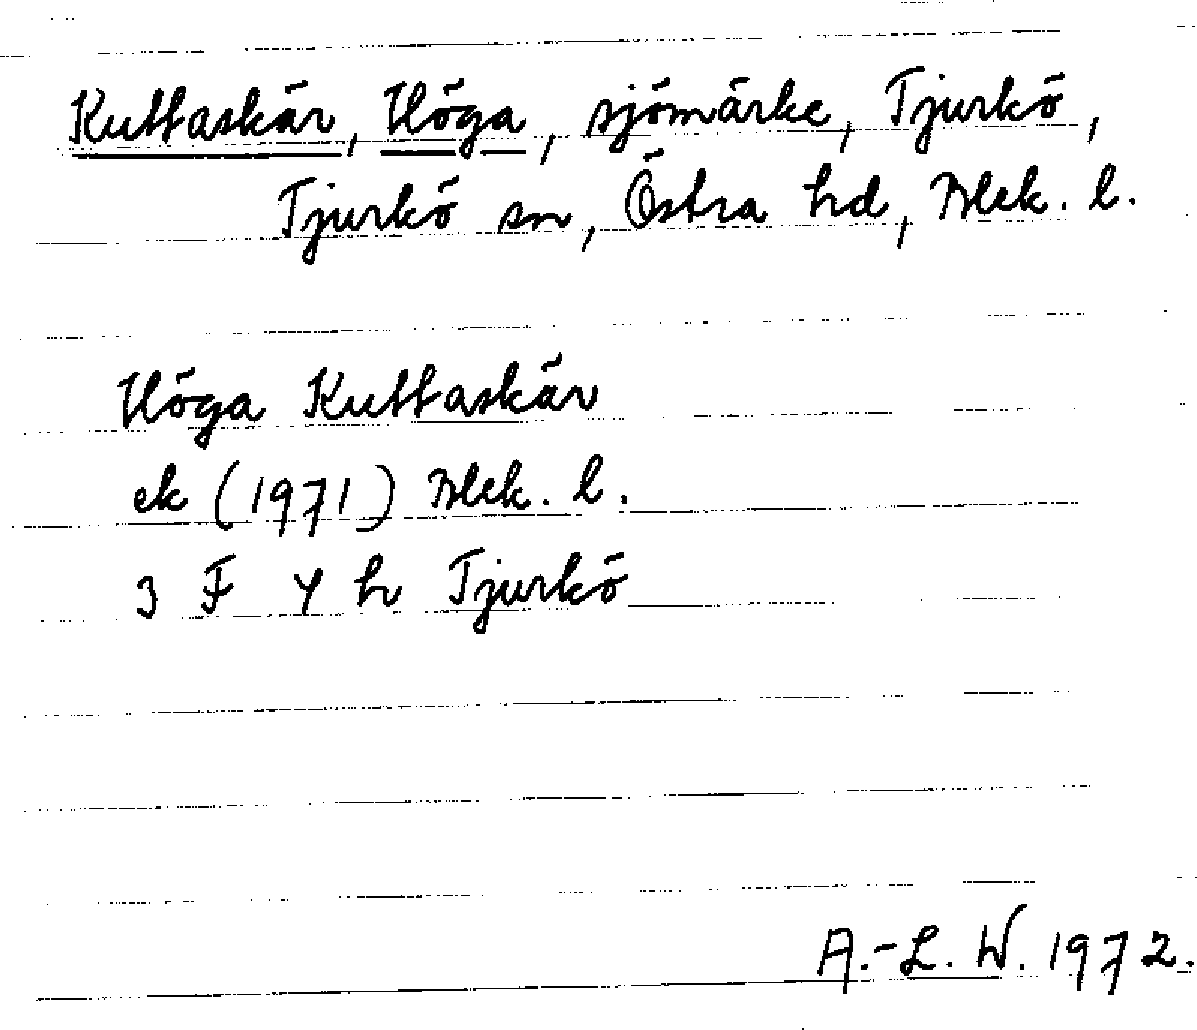 Kuttaskär, Höga, sjömärke, Tjurkö,
Tjurkö sn, Östra hd, Blek. l.
Höga Kuttaskär
ek (1971) Blek. l.
3 F 4 h Tjurkö
A.-L. W. 1972.